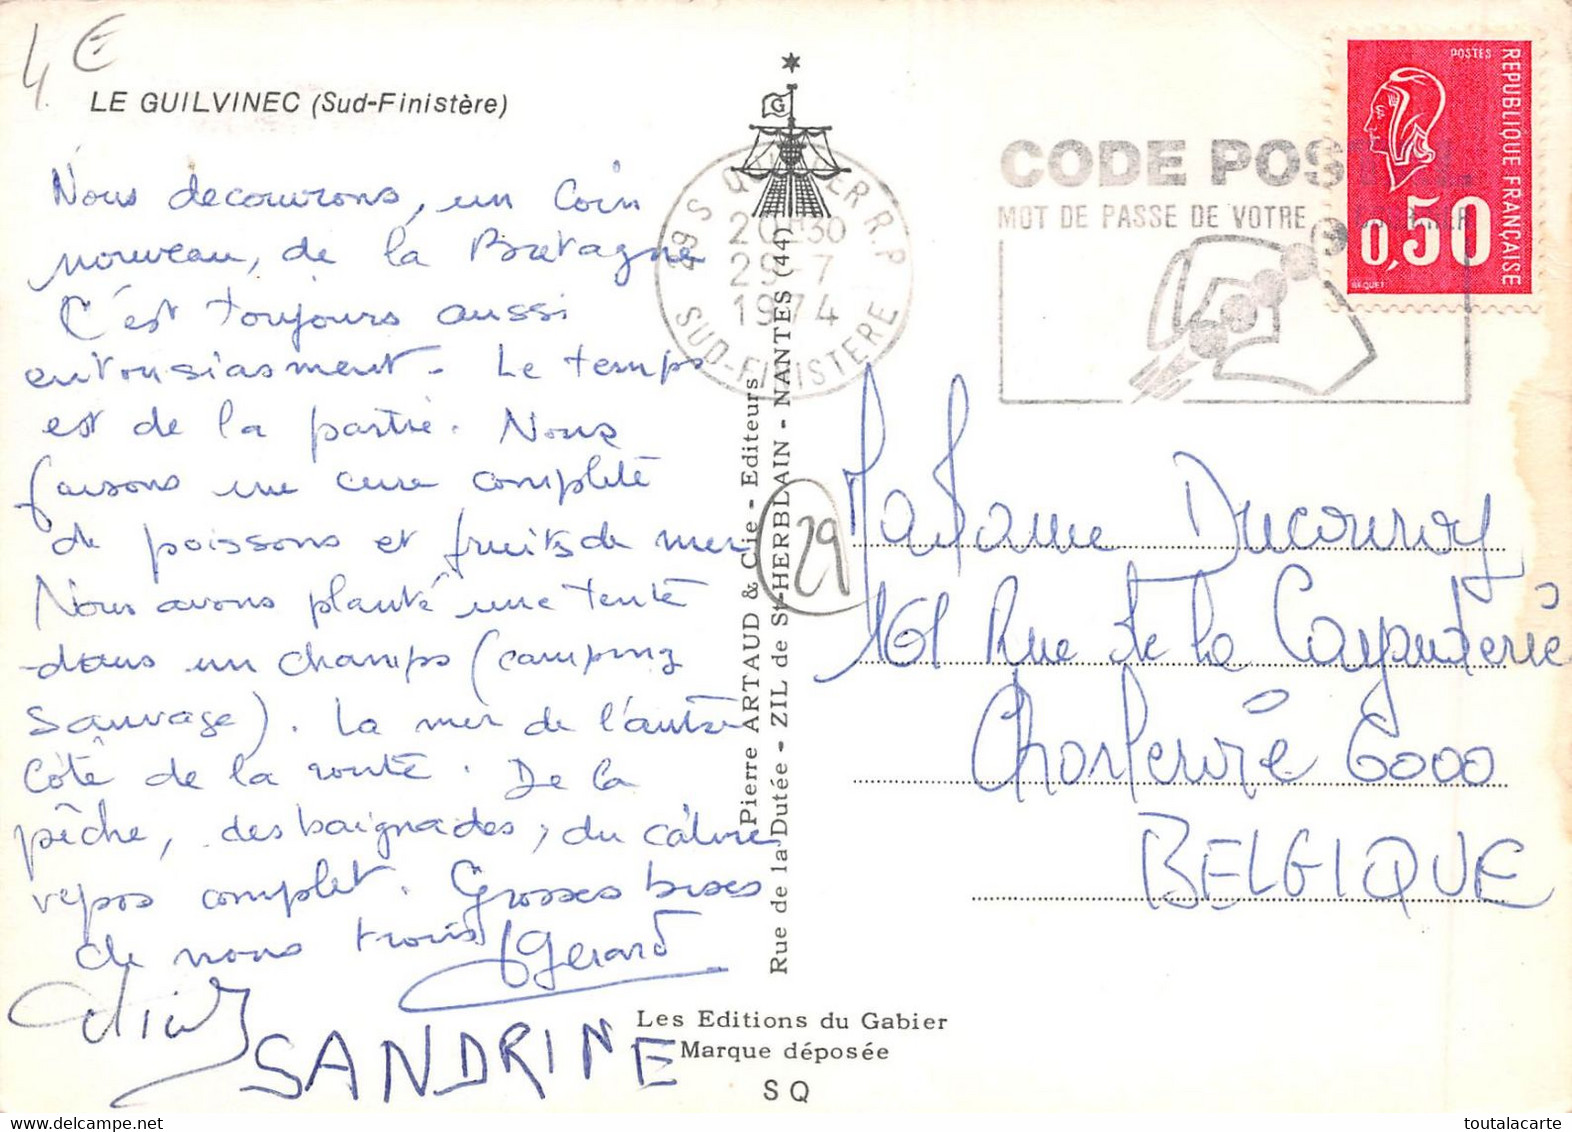 4 €
LE GUILVINEC (Sud-Finistère)
Nous decouvrons, un coin
nouveau, de la Bretagne
C'est toujours aussi
entousiasment. Le temps
est de la partie. Nous
faisons une cure complète
de poissons et fruits de mer
Nous avons planté une tente
dans un champs (camping
sauvage). La mer de l'autre
côté de la route. De la
pêche, des baignades, du calme
repos complet. Grosses bises
de nous trois Gerard
SANDRINE
G
29 S QUIMPER R.P.
20H30
29-7
1974
SUD-FINISTERE
Pierre ARTAUD & Cie - Editeurs
Rue de la Dutée - ZIL de St-HERBLAIN - NANTES (44)
29
Les Editions du Gabier
Marque déposée
SQ
CODE POSTAL
MOT DE PASSE DE VOTRE COURRIER
POSTES
REPUBLIQUE FRANÇAISE
0,50
BEQUET
Madame Ducouroy
161 Rue de la Carpenterie
Charleroi 6000
BELGIQUE
toutalacarte.com